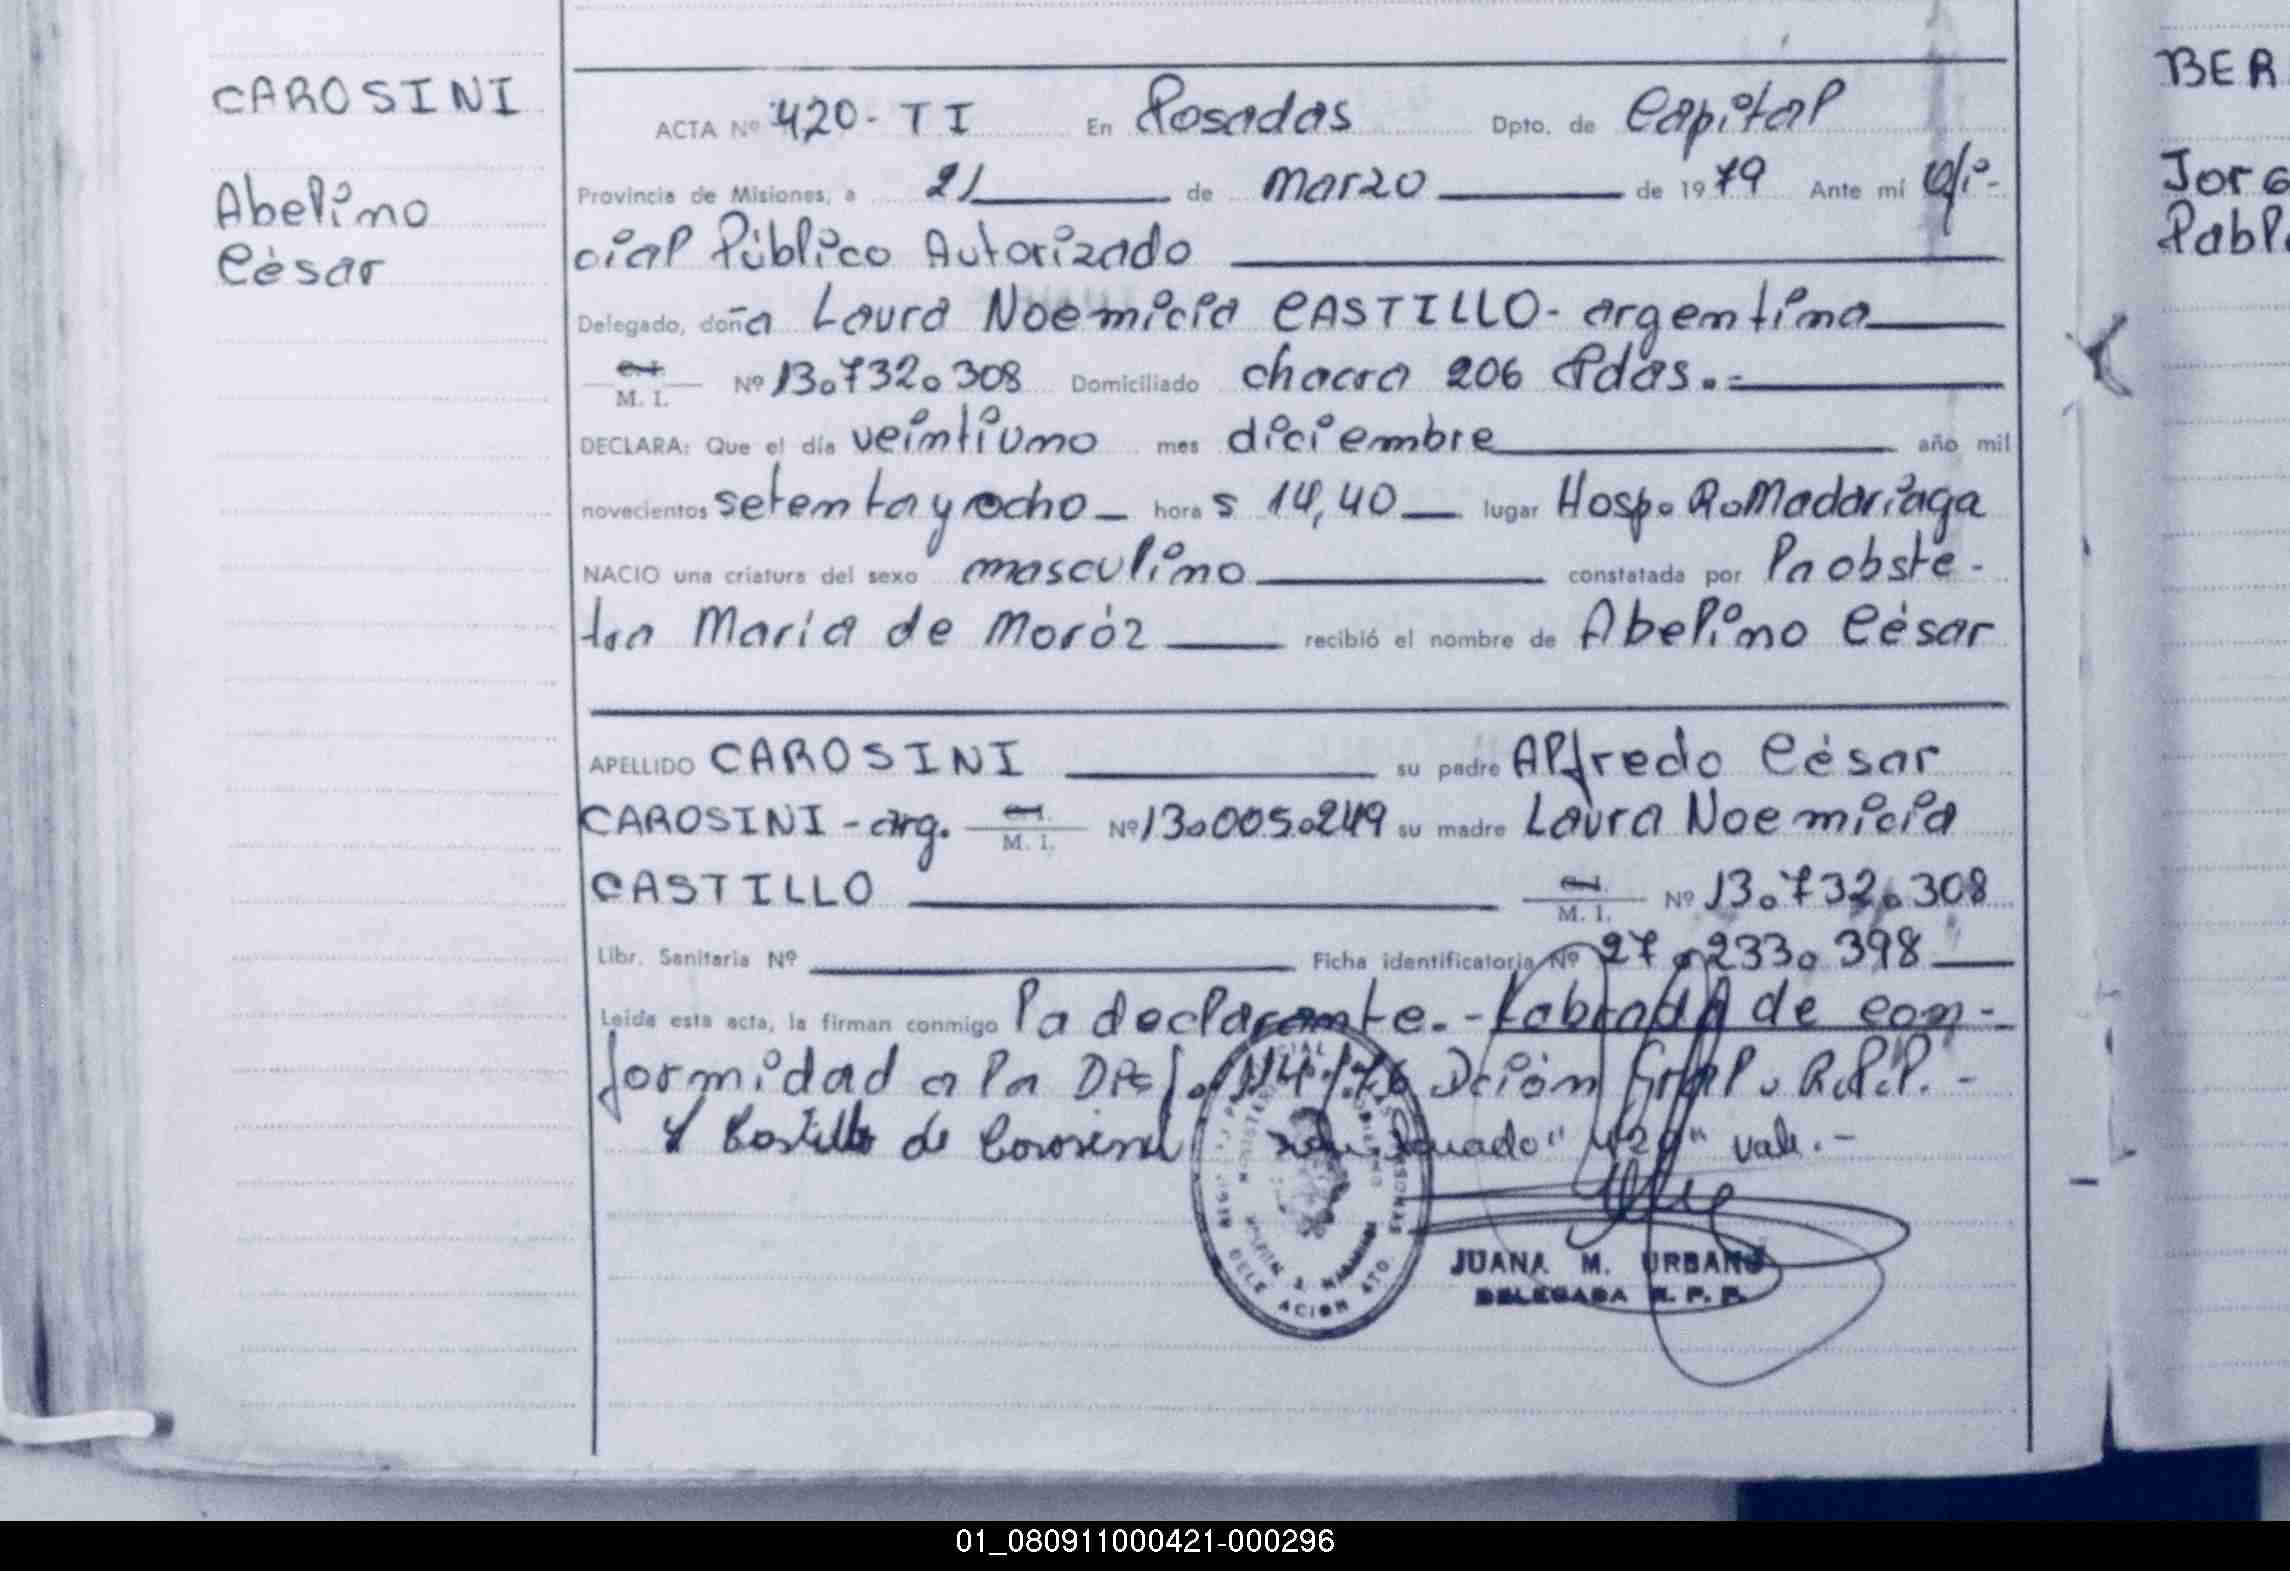 CAROSINI
Abelino
César
ACTA Nº 420- TI En Posadas Dpto. de Capital
Provincia de Misiones, a 21 de marzo de 1979 Ante mí Ofi-
cial Público Autorizado
Delegado, doña Laura Noemicia CASTILLO- argentina
M. I. Nº 13.732.308 Domiciliado chacra 206 Pdas.-
DECLARA: Que el día veintiuno mes diciembre año mil
novecientos setenta y ocho hora s 14,40 lugar Hosp. R. Madariaga
NACIO una criatura del sexo masculino constatada por la obste-
tra María de Moróz recibió el nombre de Abelino César
APELLIDO CAROSINI su padre Alfredo César
CAROSINI - arg. M. I. Nº 13.005.249 su madre Laura Noemicia
CASTILLO M. I. Nº 13.732.308
Libr. Sanitaria Nº Ficha identificatoria Nº 27.233.398
Leída esta acta, la firman conmigo la declarante.- Labrada de con-
formidad a la 114/76 Dción Gral. R.P.P.-
Castillo de Carosini "420" vale.-
JUANA M. URBANO
DELEGADA R. P. P.
DELEGACION 4TO.
BER
Jorg
Pabl
01_080911000421-000296